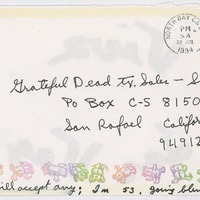 NORTH BAY CA
PM
5A
22 JUN
1994
Grateful Dead tx. Sales — S
PO Box C-S 8150
San Rafael Califor
94912
will accept any; Im 53, going blin